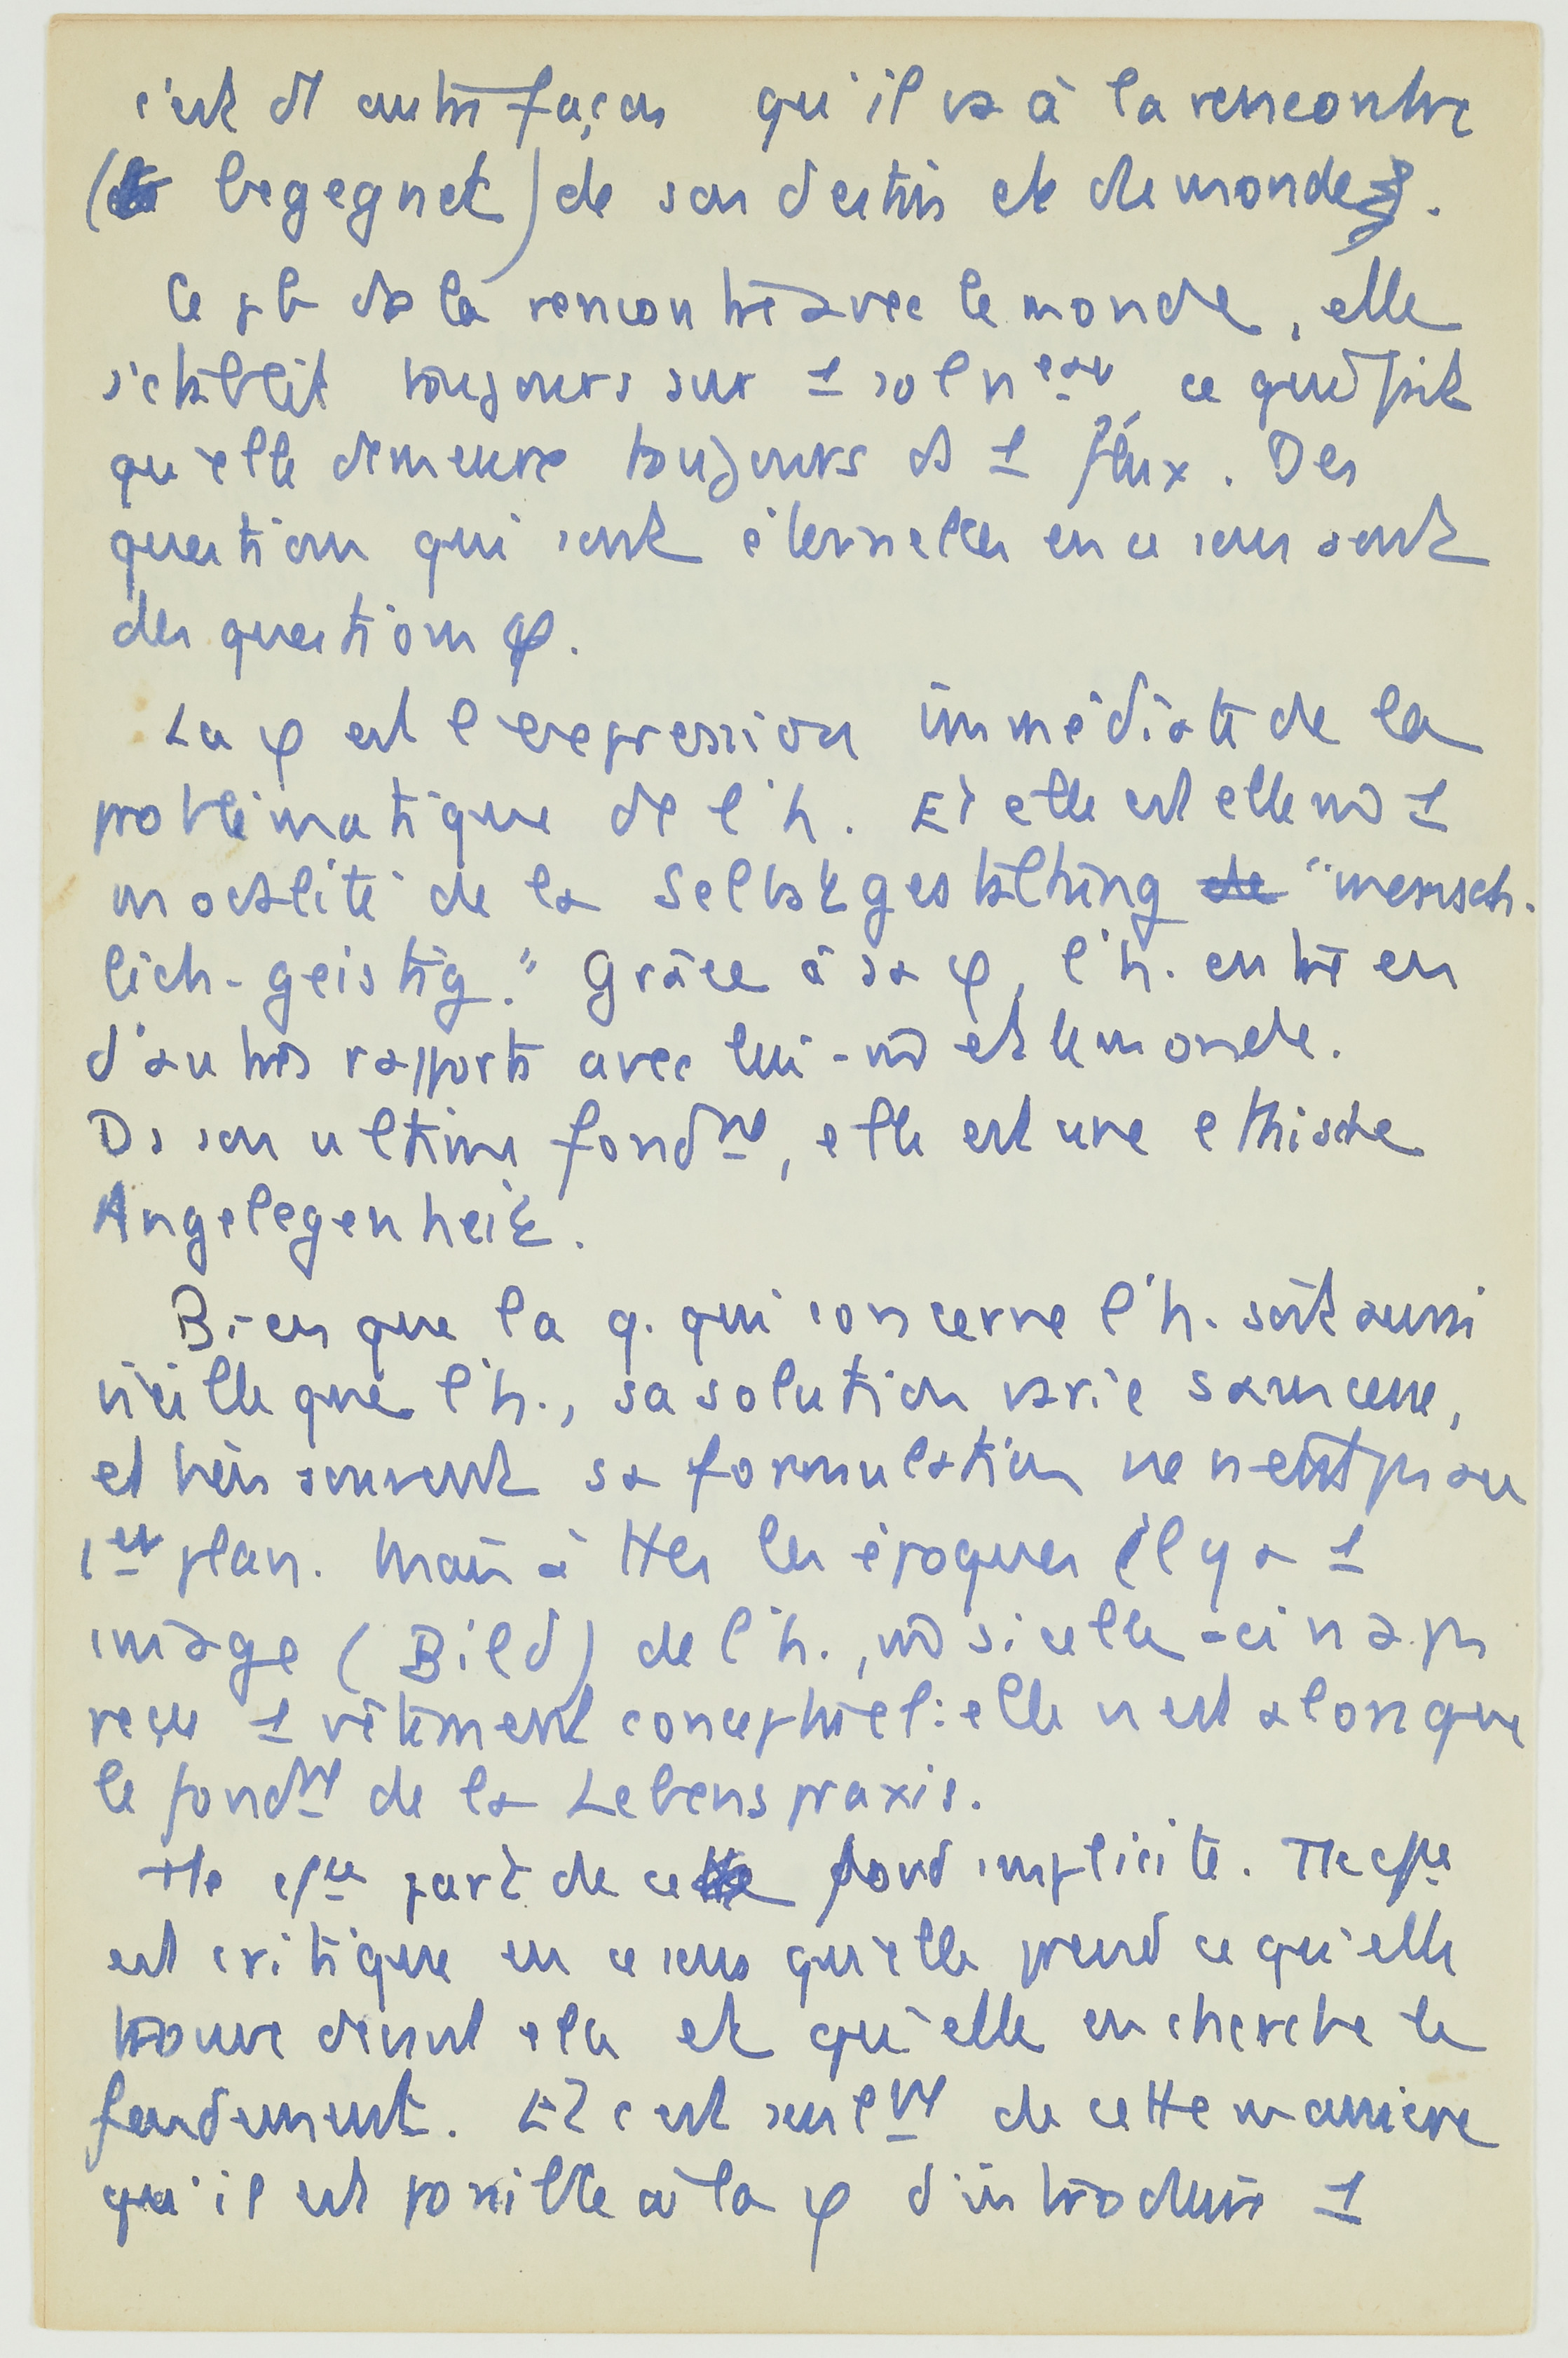 c'est d'autre façon qu'il va à la rencontre
(begegnet) de son destin et de monde.
Ce pb de la rencontre avec le monde, elle
s'établit toujours sur 1 sol nveau, ce qui fait
qu'elle demeure toujours ds 1 flux. Des
questions qui sont éternelles en ce sens sont
des questions φ.
La φ est l'expression immédiate de la
problématique de l'h. Et elle est elle m̂ 1
modalité de la Selbstgestaltung de "mensch-
lich-geistig." Grâce à sa φ, l'h. entre en
d'autres rapports avec lui-m̂ et le monde.
Ds son ultime fondmt, elle est une ethische
Angelegenheit.
Bien que la q. qui concerne l'h. soit aussi
vieille que l'h., sa solution varie sans cesse,
et bien souvent sa formulation ne vient pas au
1er plan. Mais à ttes les époques il y a 1
image (Bild) de l'h., m̂ si celle-ci n'a pas
reçu 1 vêtement conceptuel: elle n'est alors que
le fondmt de la Lebenspraxis.
Tte φie part de ce fond implicite. Tte φie
est critique en ce sens qu'elle prend ce qu'elle
trouve devant elle et qu'elle en cherche le
fondement. Et c'est seulmt de cette manière
qu'il est possible à la φ d'introduire 1